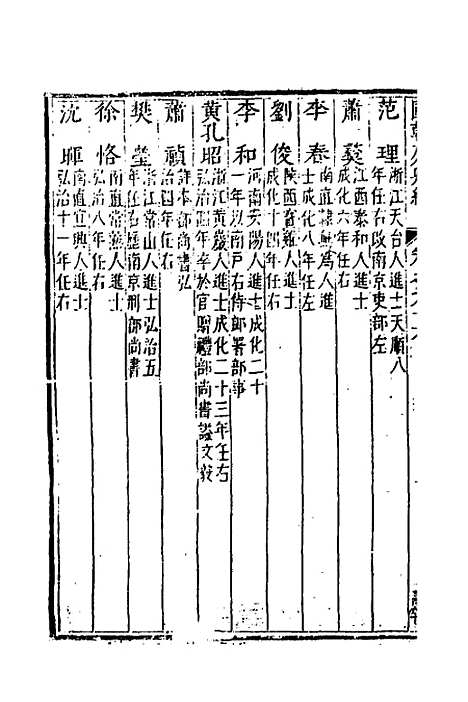 范理 浙江天台人進士天順八
年任右改南京吏部左
蕭 江西泰和人進士
成化六年任右
李春 南直隸 人進
士成化八年任左
劉俊 陝西寶雞人進士
成化十四年任右
李和 河南安陽人進士成化二十
一年以南戶右侍郎署部事
黃孔昭 浙江黃巖人進士成化二十三年任右
弘治四年卒於官贈禮部尚書諡文毅
蕭禎 詳本部尚書弘
治四年任右
樊瑩 浙江常山人進士弘治五
年任右歷南京刑部尚書
徐恪 南直常熟人進士
弘治八年任右
沈暉 南直宜興人進士
弘治十一年任右